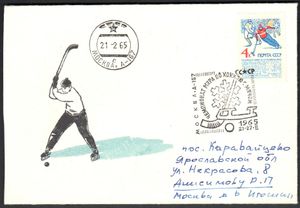 21-2 65
МОСКВА, А-167
4к
ПОЧТА СССР
СССР
МОСКВА А-167
ЧЕМПИОНАТ МИРА ПО ХОККЕЮ С МЯЧОМ
1965
21-27-II
пос. Караваево
Ярославской обл
ул. Некрасова, 8
Анисимову
Москва